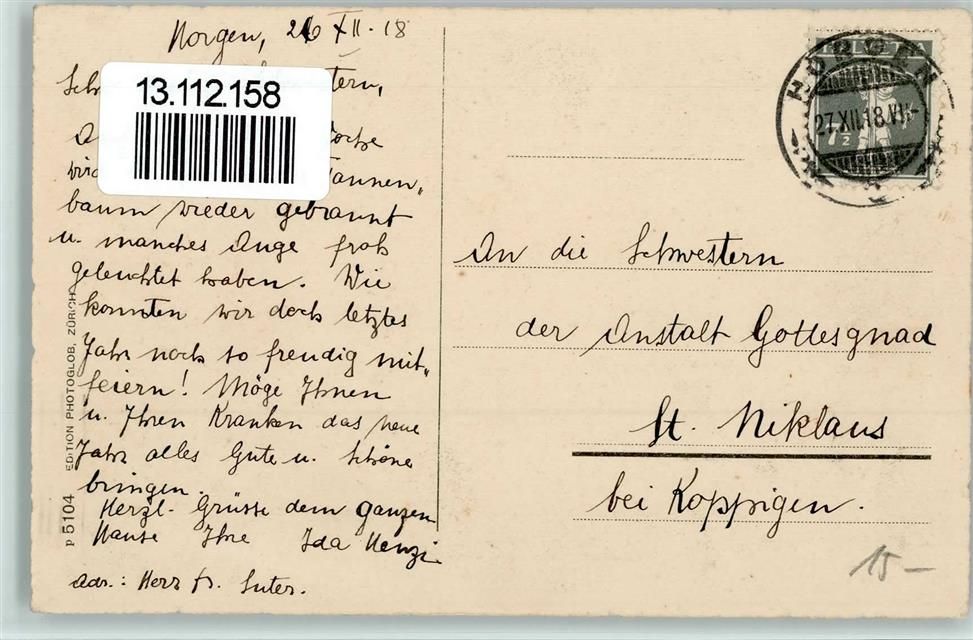 Horgen, 26 XII. 18
13.112.158
wird Tannen„
baum wieder gebrannt
u. manches Auge froh
geleuchtet haben. Wie
konnten wir doch letztes
Jahr noch so freudig mit„
feiern! Möge Ihnen
u. Ihren Kranken das neue
Jahr alles Gute u. Schöne
bringen.
Herzl. Grüsse dem ganzen
Hause Ihre Ida Henzi
Adr.: Herr Fr. Suter.
p 5104 EDITION PHOTOGLOB, ZÜRICH
HORGEN
27.XII.18.VII-
HELVETIA
7½
An die Schwestern
der Anstalt Gottesgnad
St. Niklaus
bei Koppigen.
15 –